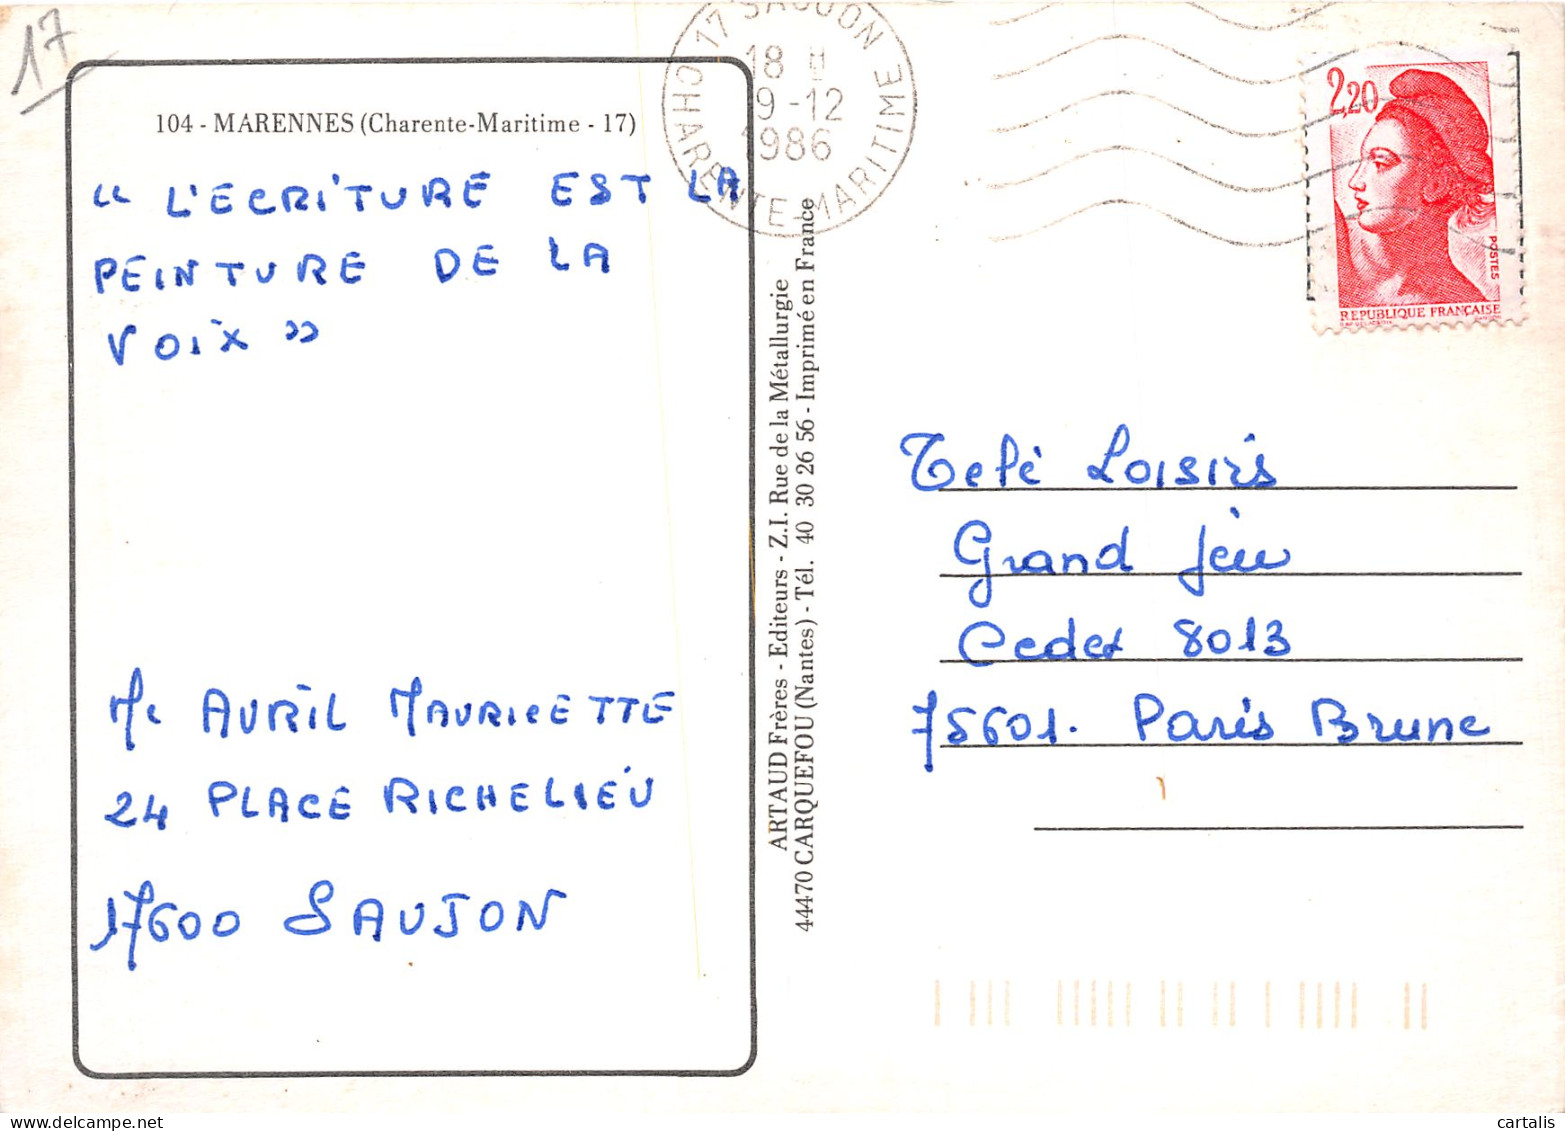 17
104 - MARENNES (Charente-Maritime - 17)
“ L'ECRITURE EST LA
PEINTURE DE LA
VOIX ”
Me AVRIL MAURICETTE
24 PLACE RICHELIEU
17600 SAUJON
ARTAUD Frères - Editeurs - Z.I. Rue de la Métallurgie
44470 CARQUEFOU (Nantes) - Tél. 40 30 26 56 - Imprimé en France
17 SAUJON
18 H
9-12
1986
CHARENTE-MARITIME
2,20
POSTES
REPUBLIQUE FRANÇAISE
Télé Loisirs
Grand Jeu
Cedex 8013
75601. Paris Brune
cartalis